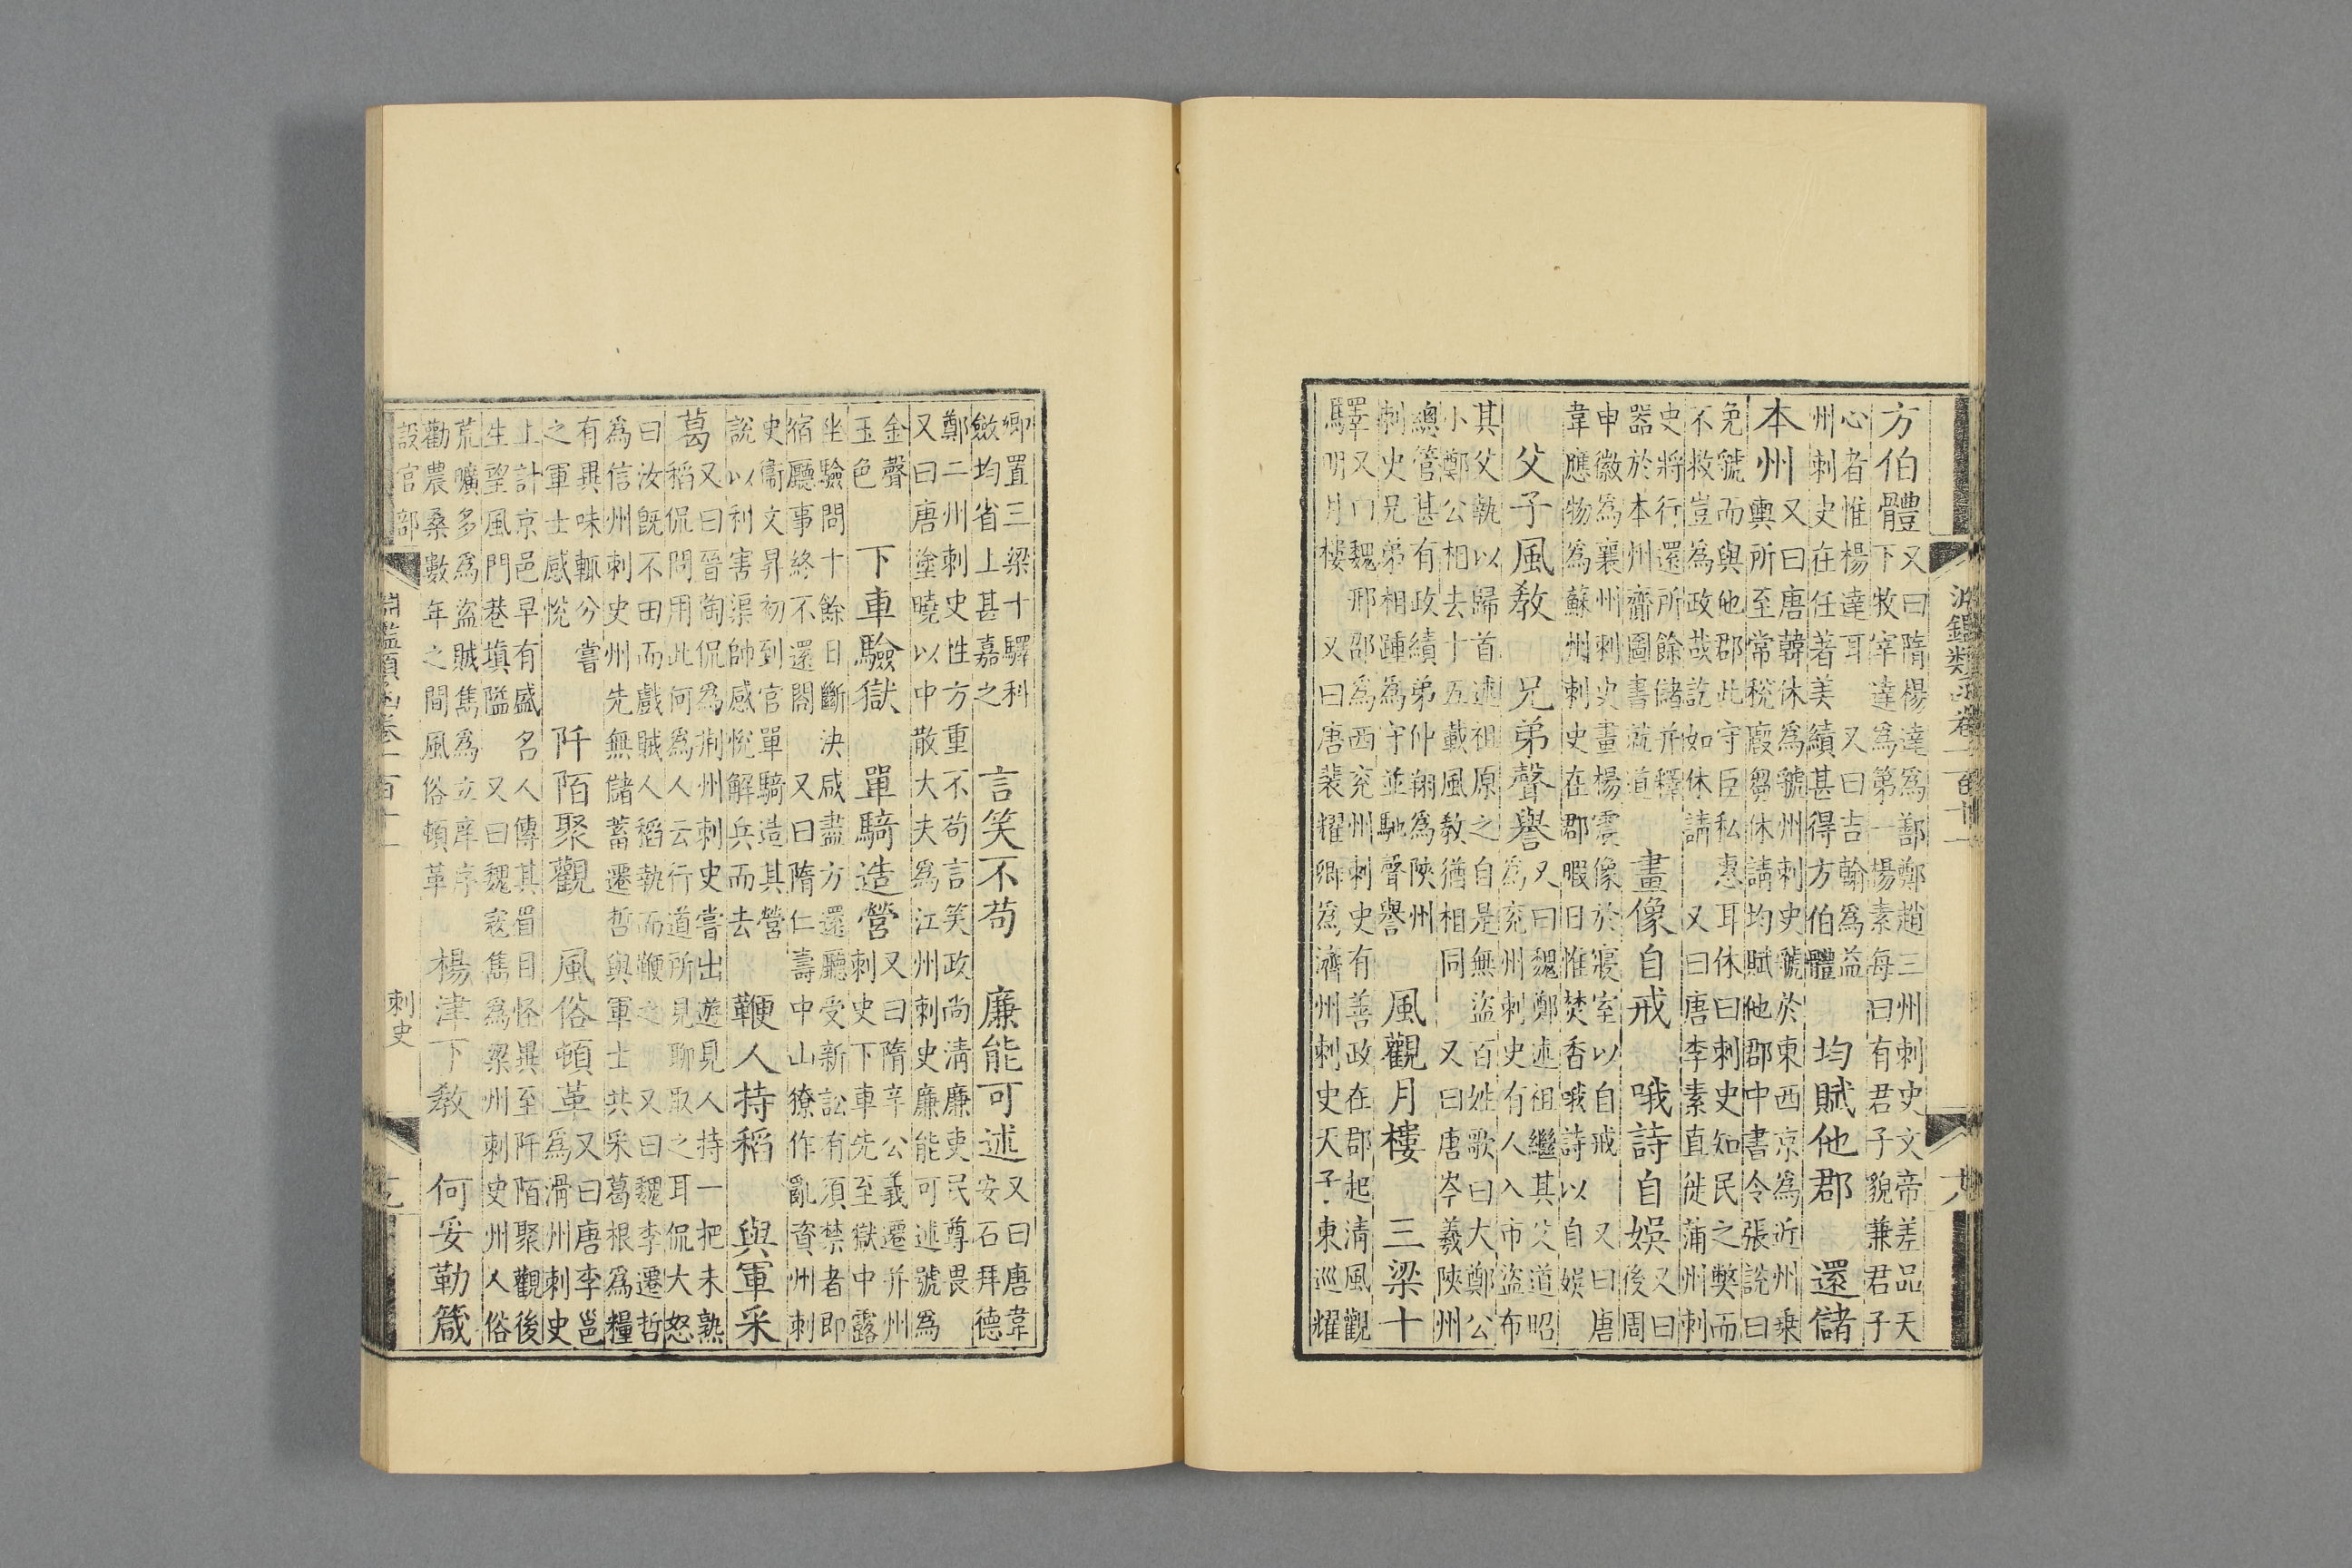 淵鑑類函卷二百十一
方伯體
又曰隋楊達為鄯鄭趙三州刺史文帝差品天
下牧宰達為第一楊素每曰有君子貌兼君子
心者惟楊達耳　又曰吉翰為益
州刺史在任著美績甚得方伯體
均賦他郡　還儲
本州
又曰唐韓休為虢州刺史虢於東西京為近州乗
輿所至常稅廄芻休請均賦他郡中書令張說曰
免虢而與他郡此守臣私惠耳休曰刺史知民之獘而
不救豈為政哉訖如休請　又曰唐李素直徙蒲州刺
史將行還所餘儲并釋
器於本州齋圖書就道
畫像自戒　哦詩自娯
又曰
後周
申徽為襄州刺史畫楊震像於寢室以自戒　又曰唐
韋應物為蘇州刺史在郡暇日惟焚香哦詩以自娛
父子風教　兄弟聲譽
又曰魏鄭述祖繼其父道昭
為兖州刺史有人入市盜布
其父執以歸首述祖原之自是無盜百姓歌曰大鄭公
小鄭公相去十五載風教猶相同　又曰唐岑羲陝州
總管甚有政績弟仲翔為陝州
刺史兄弟相踵為守並馳聲譽
風觀月樓　三梁十
驛
又曰魏邢邵為西兖州刺史有善政在郡起清風觀
明月樓　又曰唐裴耀卿為濟州刺史天子東巡耀
卿置三梁十驛科
斂均省上甚嘉之
言笑不苟　廉能可述
又曰唐韋
安石拜德
鄭二州刺史性方重不苟言笑政尚清廉吏民尊畏
又曰唐塗曉以中散大夫為江州刺史廉能可述號為
金聲
玉色
下車驗獄　單騎造營
又曰隋辛公義遷并州
刺史下車先至獄中露
坐驗問十餘日斷決咸盡方還廳受新訟有須禁者即
宿廳事終不還閤　又曰隋仁壽中山獠作亂資州刺
史衞文昇初到官單騎造其營
說以利害渠帥感悅解兵而去
鞭人持稻　與軍采
葛
又曰晉陶侃為荆州刺史嘗出遊見人持一把未熟
稻侃問用此何為人云行道所見聊取之耳侃大怒
曰汝既不田而戲賊人稻執而鞭之　又曰魏李遷哲
為信州刺史州先無儲蓄遷哲與軍士共采葛根為糧
有異味輒分嘗
之軍士感悅
阡陌聚觀　風俗頓革
又曰唐李邕
為滑州刺史
上計京邑早有盛名人傳其眉目怪異至阡陌聚觀後
生望風門巷填隘　又曰魏寇雋為梁州刺史州人俗
荒曠多為盜賊雋為立庠序
勸農桑數年之間風俗頓革
楊津下教　何妥勒箴
設官部
淵鑑類函卷二百十一
刺史